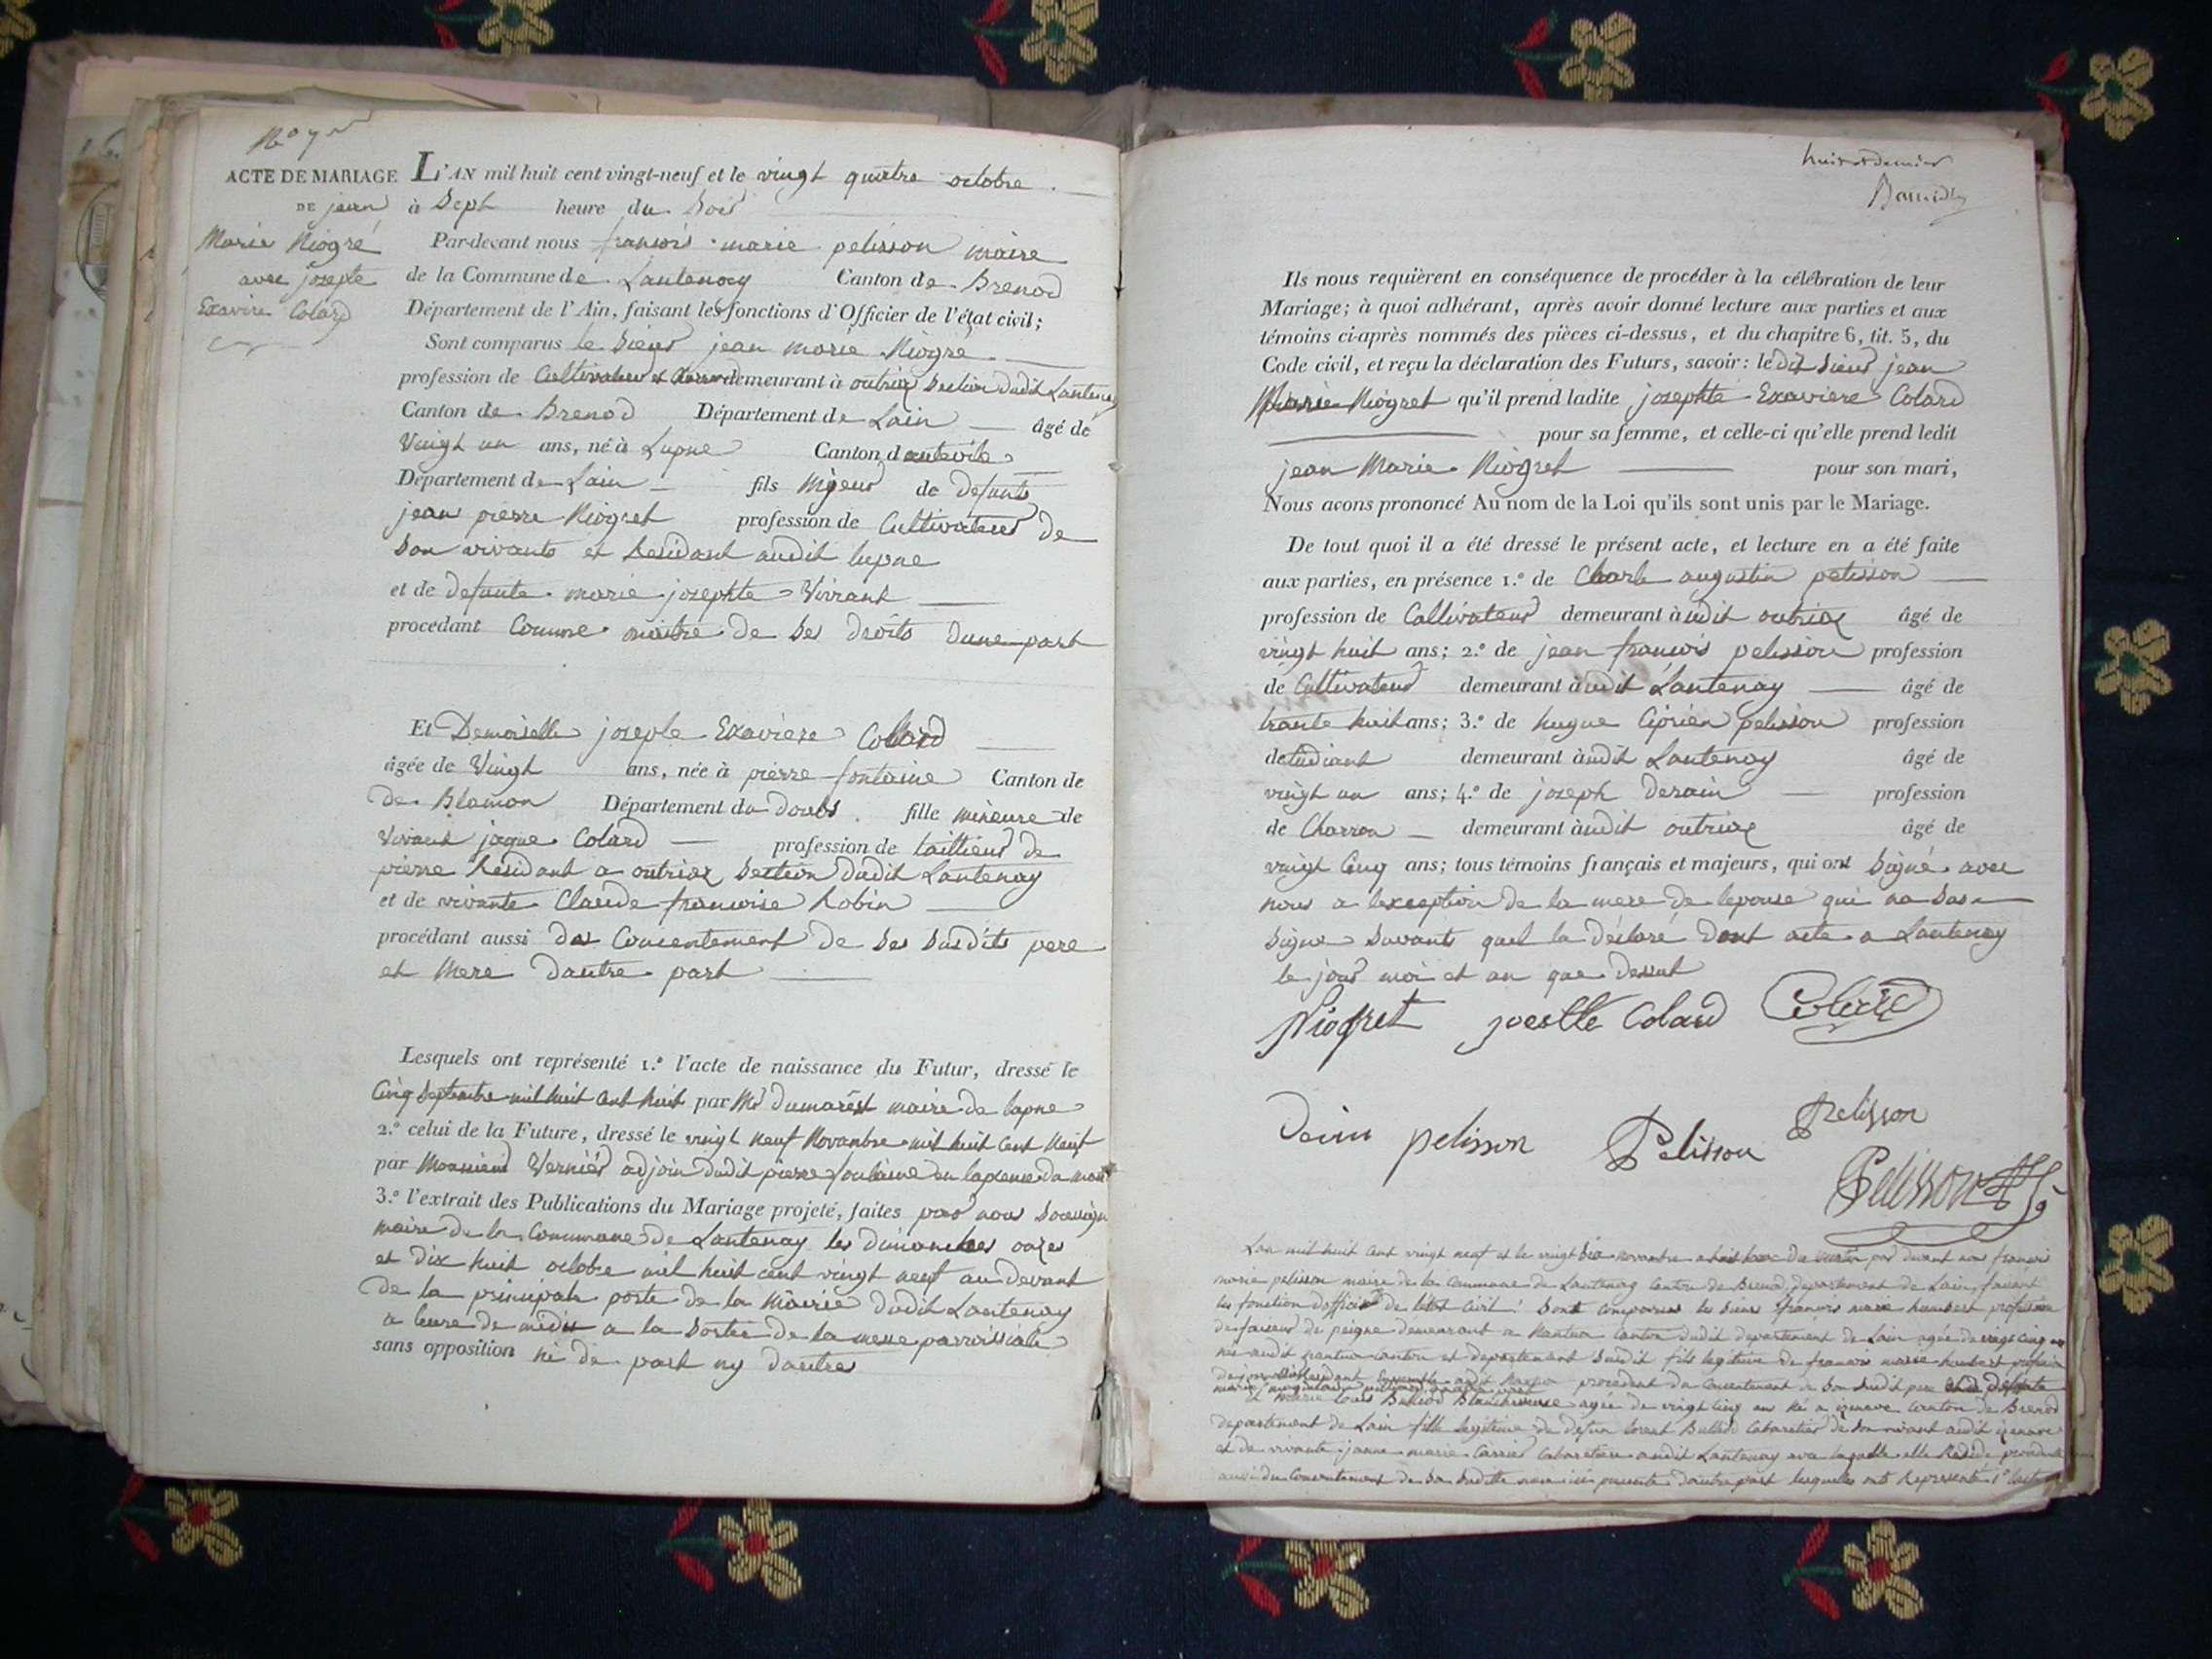 ACTE DE MARIAGE
DE jean
Marie Niogré
avec josephe
Exavire Colard
L'AN mil huit cent vingt-neuf et le vingt quatre octobre
à Sept heure du Soir
Par-devant nous francois marie pelisson maire
de la Commune de Lantenay Canton de Brenod
Département de l'Ain, faisant les fonctions d'Officier de l'état civil;
Sont comparus le Sieur jean marie Niogré
profession de Cultivateur et demeurant à outriaz Section dudit Lantenay
Canton de Brenod Département de Lain âgé de
Vingt un ans, né à Lupne Canton d auteville
Département de Lain fils Majeur de defunts
jean pierre Niogret profession de Cultivateur de
Son vivants et Residant audit lupne
et de defunte marie josephte Vivrant
procedant Comme maitre de Ses droits dune part
Et Demoiselle josephe Exaviere Collard
âgée de Vingt ans, née à pierre fontaine Canton de
de Blamon Département du doubs fille mineure de
vivant jaque Colard profession de taillieur de
pierre Residant a outriaz Section dudit Lantenay
et de vivante Claude francoise Robin
procédant aussi du Concentement de Ses Susdits pere
et Mere dautre part
Lesquels ont représenté 1.º l'acte de naissance du Futur, dressé le
Cinq Septembre mil huit Cent huit par Mr dumarest maire de lupne
2.º celui de la Future, dressé le vingt neuf Novambre mil huit Cent Neuf
par Monsieur Vernier adjoin dudit pierre fontaine en labsence du maire
3.º l'extrait des Publications du Mariage projeté, faites par nous Soussigné
maire de la Commune de Lantenay les dimanches onze
et dix huit octobre mil huit cent vingt neuf au devant
de la principale porte de la Mairie dudit Lantenay
a leure de midis a la Sortie de la messe parroissiale
sans opposition ni de part ny dautres
huit et dernier
Ils nous requièrent en conséquence de procéder à la célébration de leur
Mariage; à quoi adhérant, après avoir donné lecture aux parties et aux
témoins ci-après nommés des pièces ci-dessus, et du chapitre 6, tit. 5, du
Code civil, et reçu la déclaration des Futurs, savoir: le dit Sieur jean
Marie Niogret qu'il prend ladite josephte Exaviere Colard
pour sa femme, et celle-ci qu'elle prend ledit
jean Marie Niogret pour son mari,
Nous avons prononcé Au nom de la Loi qu'ils sont unis par le Mariage.
De tout quoi il a été dressé le présent acte, et lecture en a été faite
aux parties, en présence 1.º de Charle augustin pelisson
profession de Cultivateur demeurant à udit outriaz âgé de
vingt huit ans; 2.º de jean francois pelisson profession
de Cultivateur demeurant à udit Lantenay âgé de
trante huit ans; 3.º de hugue Ciprien pelisson profession
detudiant demeurant à udit Lantenay âgé de
vingt un ans; 4.º de joseph derain profession
de Charron demeurant à udit outriaz âgé de
vingt Cinq ans; tous témoins français et majeurs, qui ont Signé avec
nous a lexception de la mere de lepouse qui na Sas
Signe Savants quel la déclaré dont acte a Lantenay
le jour moi et an que dessut
Niogret joestte Colard Colard
pelisson Pelisson Pelisson
Pelisson
Lan mil huit Cent vingt neuf et le vingt Six novambre a huit heure du matin par devant nous francois
marie pelisson maire de la Commune de Lantenay Canton de Brenod departement de Lain faisant
les fonction dofficier de letat Civil: Sont Comparus le Sieur francois marie humbert profession
de faiseur de peigne demeurant a Nantua Canton dudit departement de Lain agée de vingt Cinq ans
né audit nantua Canton et departement Susdit fils legitime de francois marie humbert
Residant audit Nantua procedant du Concentement de Son Susdit pere
et Marie Louis Bulliod Blanchisseuse agée de vingt Cinq ans né a izenave Canton de Brenod
departement de Lain fille legitime de defun Bulliod Cabaretier de Son vivant audit izenave
et de vivante janne marie Carrier Cabaretiere audit Lantenay avec laquelle elle Reside procedante
aussi du Consentement de Sa Suditte mere ici presente dautre part lesquelles ont Representé 1º lacte